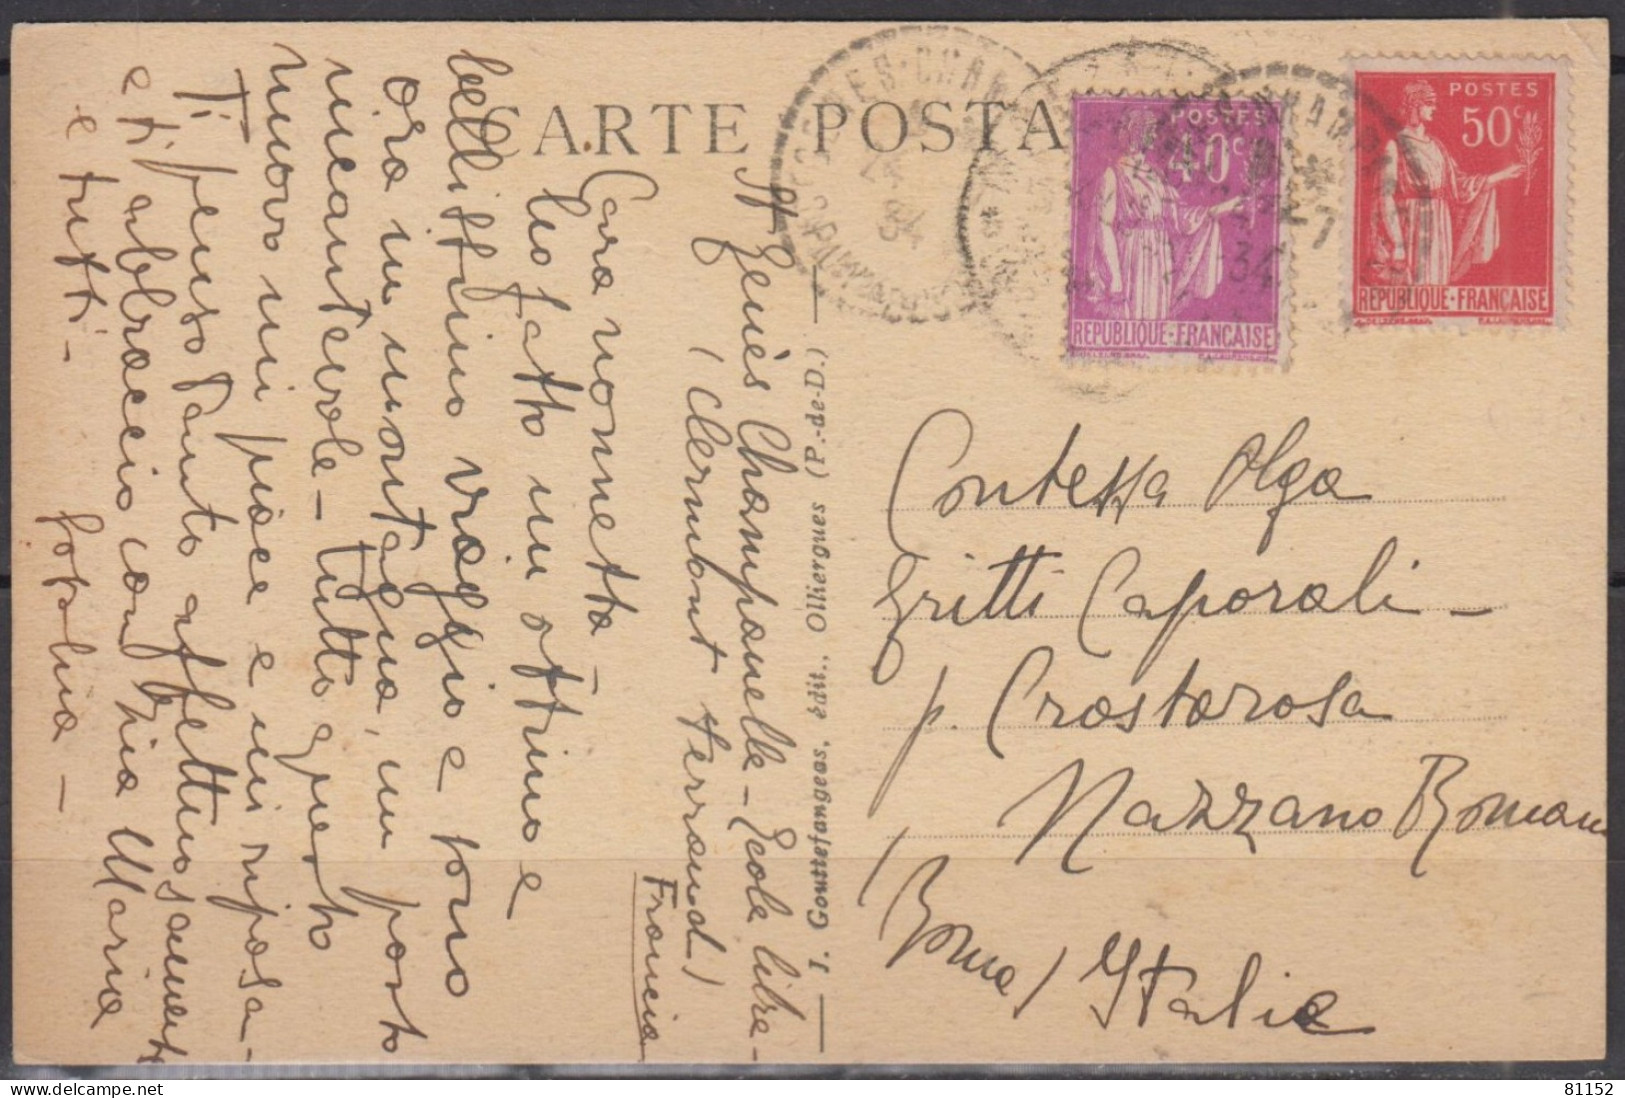 CARTE POSTA
POSTES
40c
REPUBLIQUE-FRANÇAISE
POSTES
50c
REPUBLIQUE-FRANÇAISE
34
St Genès Champanelle - Ecole libre -
(Clermont Ferrand)
Francia
Cara nonnetta -
ho fatto un ottimo e
bellissimo viaggio e sono
ora in montagna, un posto
incantevole - tutto questo
nuovo mi piace e mi riposa -
Ti penso tanto affettuosamente
e ti abbraccio con zia Maria
e tutti -
J. Gouttefangeas, édit., Olliergues (P.-de-D.)
Contessa Olga
Gritti Caporali -
p. Crostarosa
Nazzano Romano
(Roma) Italie
81152